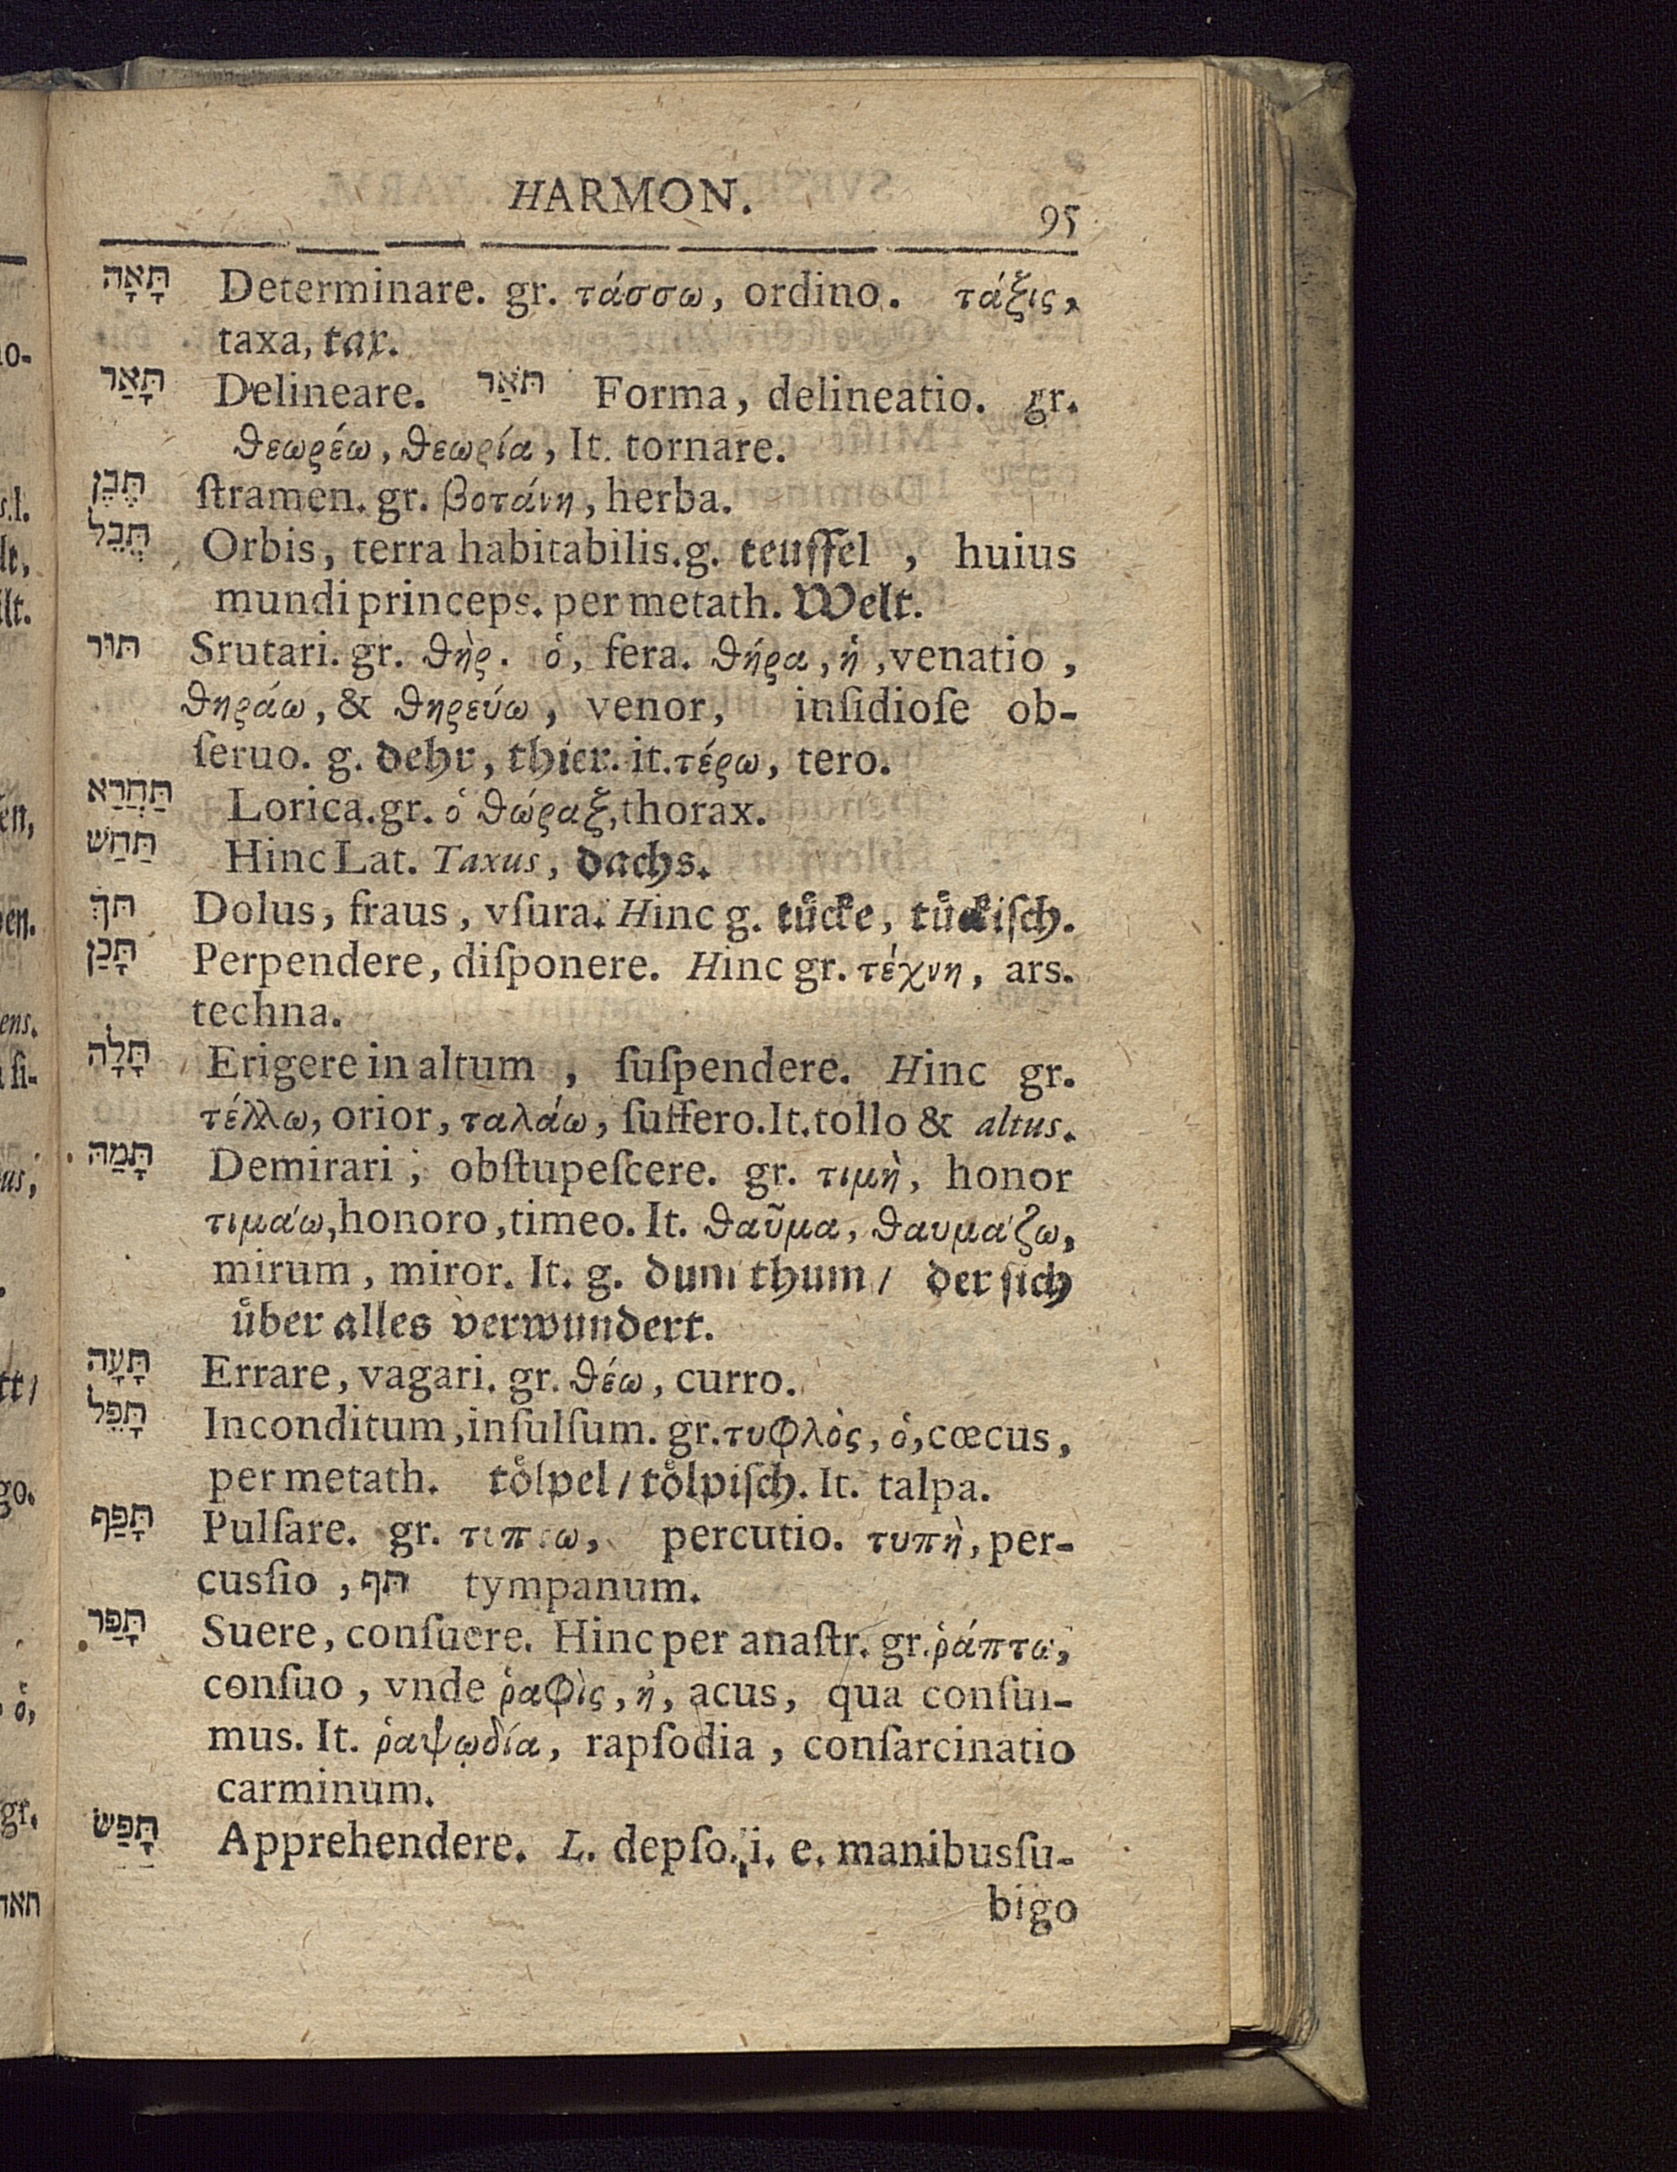 HARMON.
95
תָּאָה Determinare. gr. τάσσω, ordino. τάξις,
taxa, tax.
תָּאַר Delineare. תֹּאַר Forma, delineatio. gr.
θεωρέω, θεωρία, It. tornare.
תֶּבֶן ſtramen. gr. βοτάνη, herba.
תֵּבֵל Orbis, terra habitabilis. g. teuffel, huius
mundi princeps. per metath. Welt.
תּוּר Srutari. gr. θὴρ. ὁ, fera. θήρα, ἡ, venatio,
θηράω, & θηρεύω, venor, inſidioſe ob-
ſeruo. g. dehr, thier. it. τέρω, tero.
תַּחֲרַא Lorica. gr. ὁ θώραξ, thorax.
תַּחַשׁ Hinc Lat. Taxus, dachs.
תּךְ Dolus, fraus, vſura. Hinc g. tuͤcke, tuͤckiſch.
תָּכַן Perpendere, diſponere. Hinc gr. τέχνη, ars.
techna.
תָּלָה Erigere in altum, ſuſpendere. Hinc gr.
τέλλω, orior, ταλάω, ſuffero. It. tollo & altus.
תָּמַהּ Demirari, obſtupeſcere. gr. τιμὴ, honor
τιμάω, honoro, timeo. It. θαῦμα, θαυμάζω,
mirum, miror. It. g. dum thum / der ſich
uͤber alles verwundert.
תָּעָה Errare, vagari. gr. θέω, curro.
תָּפֵל Inconditum, inſulſum. gr. τυφλὸς, ὁ, cœcus,
per metath. toͤlpel / toͤlpiſch. It. talpa.
תָּפַף Pulſare. gr. percutio. τυπὴ, per-
cuſſio, תּף tympanum.
תָּפַר Suere, conſuere. Hinc per anaſtr. gr. ῥάπτω,
conſuo, vnde ῥαφὶς, ἡ, acus, qua conſui-
mus. It. ῥαψῳδία, rapſodia, conſarcinatio
carminum.
תָּפַשׂ Apprehendere. L. depſo. i. e. manibus ſu-
bigo